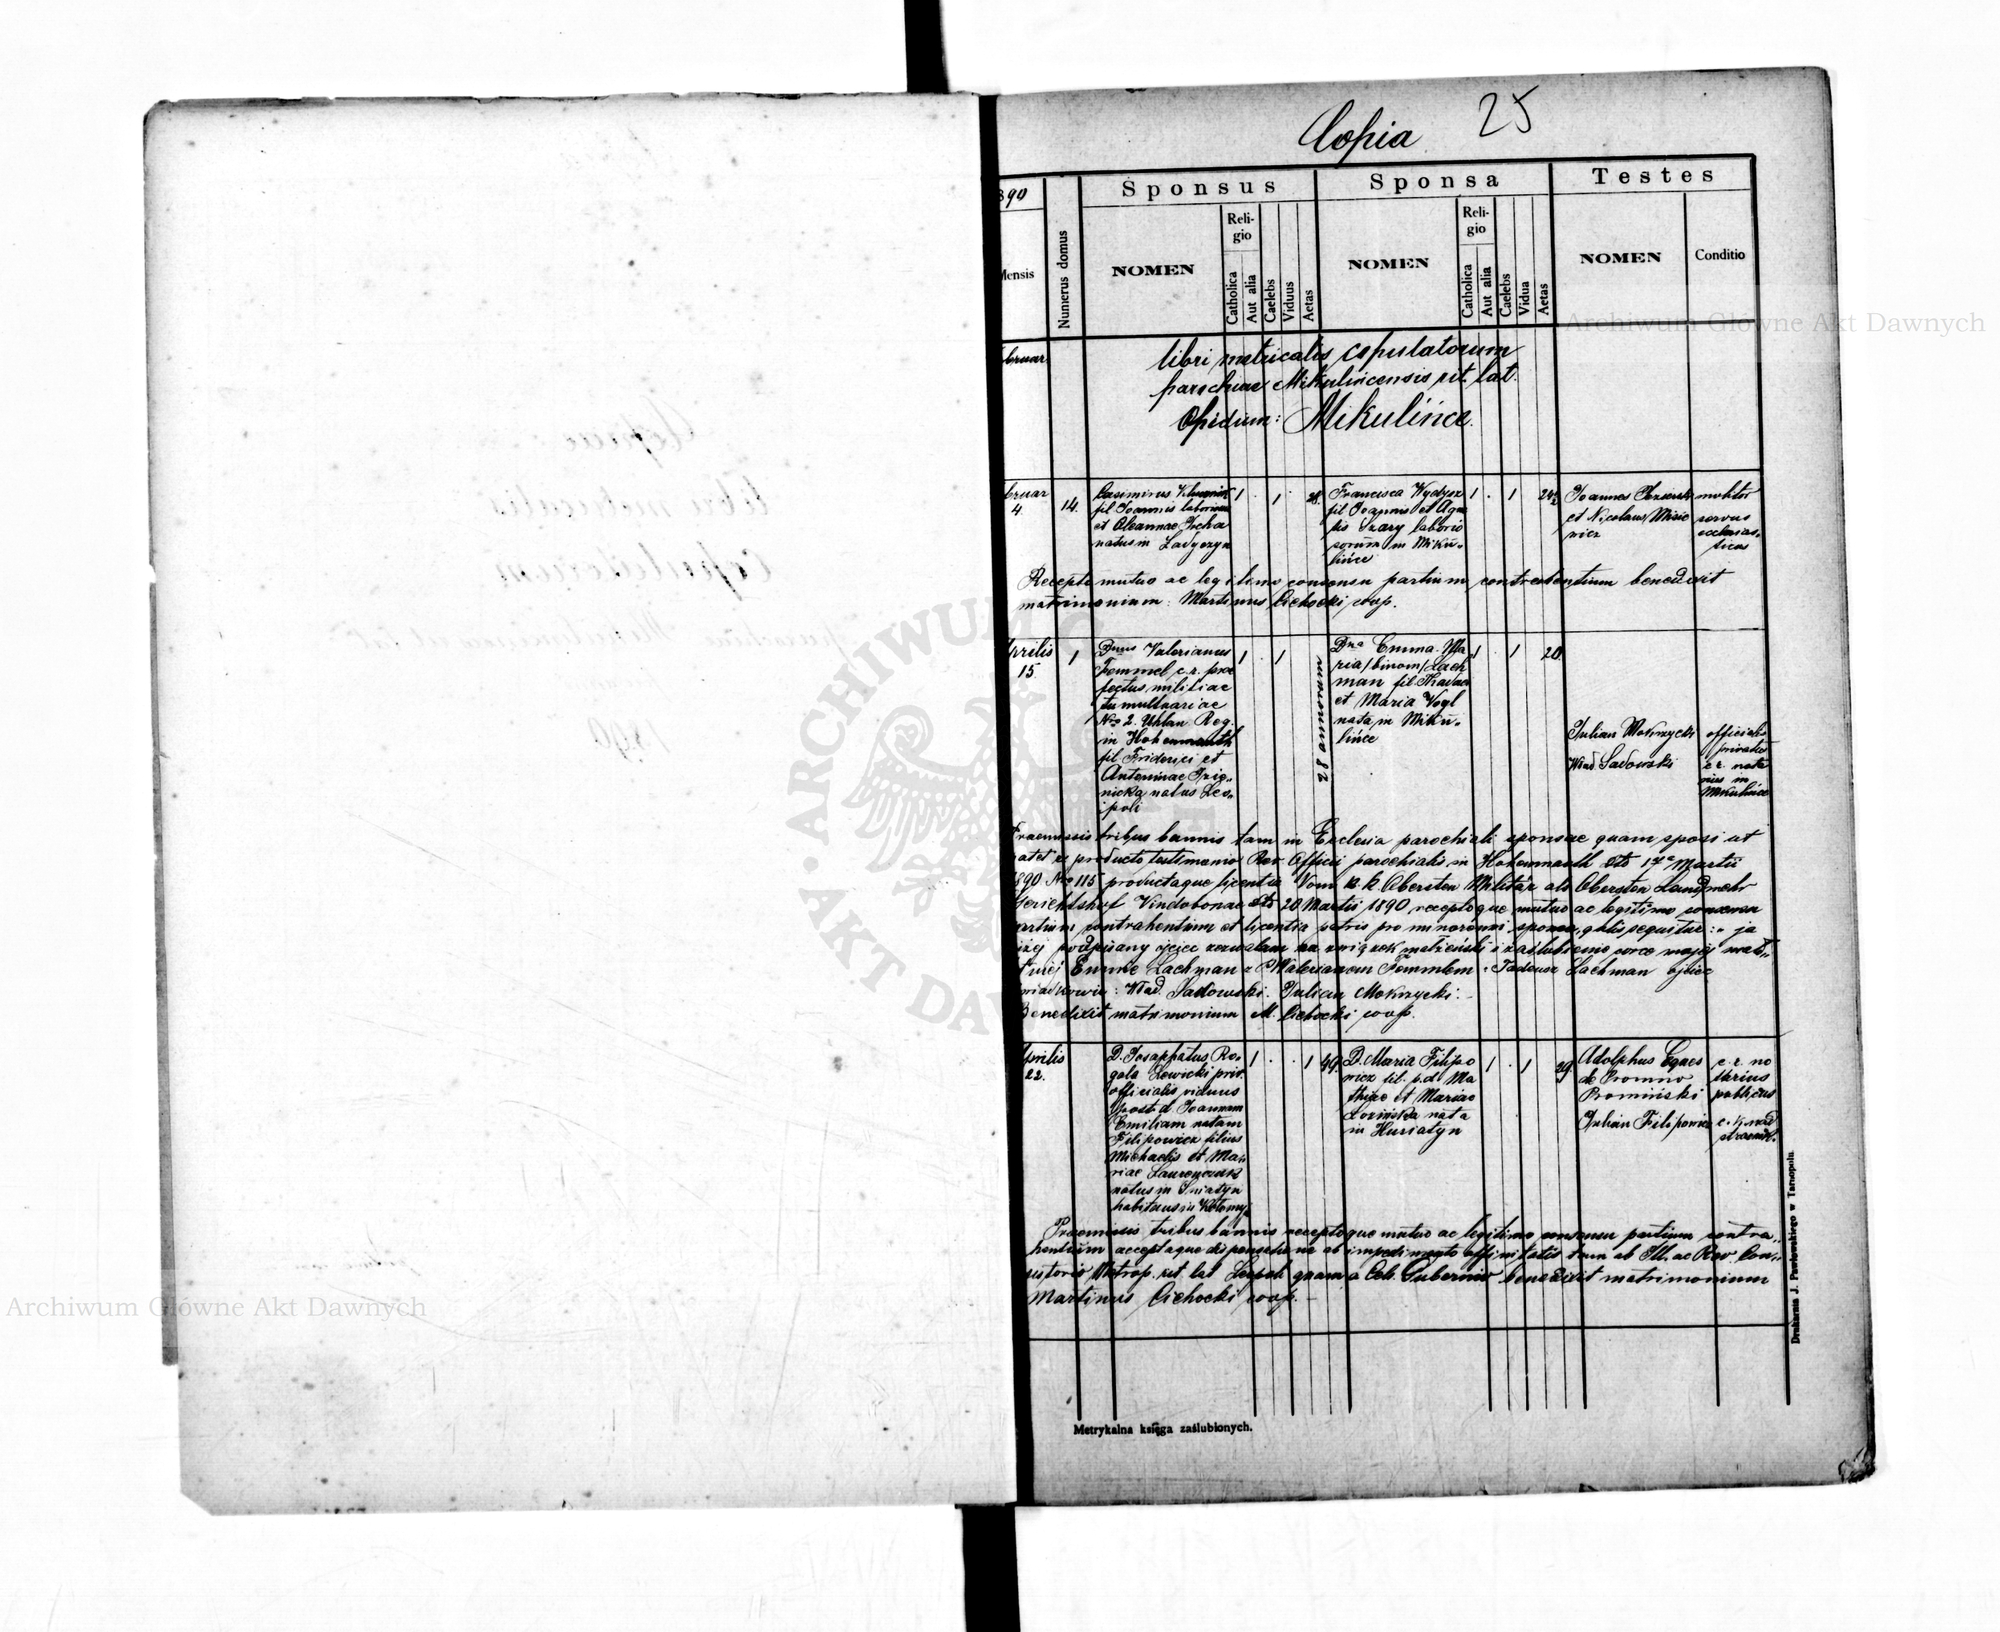 Copia 25
890
Sponsus
Sponsa
Testes
Mensis
Numerus domus
NOMEN
Religio
Catholica
Aut alia
Caelebs
Viduus
Aetas
NOMEN
Religio
Catholica
Aut alia
Caelebs
Vidua
Aetas
NOMEN
Conditio
bruar
libri metricalis copulatorum
parochiae Mikulincensis rit. lat.
Opidum: Mikulińce.
bruar
4.
14.
Casimirus
fil Joannis
et
natus in Ladyczyn
1 . 1 . 28.
Francisca
fil Joannis et Aga
tis Szary laborio
sorum in Miku„
lińce
1 . 1 24½
Joannes
et Nicolaus Misie
wicz
molitor
servus
ecclesias„
ticus
Recepto mutuo ac legitimo consensu partium contrahentium benedixit
matrimonium: Martinus Cichocki coop.
prilis
15.
1
Dnus Valerianus
Femmel c.r. prae
fectus militiae
tumultuariae
No 2. Uhlan Reg.
in Hohenmauth
fil Friderici et
Antoninae
natus Leo„
poli
1 . 1
28 annorum
Dna Emma Ma
ria /binom/ Lach
man fil. Thadaei
et Maria Vogl
nata in Miku„
lińce
1 . 1 20.
Julian Mokrzycki
Wład Sadowski
officialis
privatus
c. r. nota
rius in
Mikulińce
Praemissis tribus bannis tam in Ecclesia parochiali sponsae quam sposi ut
patet ex producto testimonio Rev. Officii parochialis in Hohenmauth dto 17ª Martii
890 No 115 productaque licentia Vom k.k. Obersten Militär als Obersten Landwehr
Gerichtshof Vindobonae dto 20 Martii 1890 receptoque mutuo ac legitimo consensu
partium contrahentium et licentia patris pro minorenni sponsa, qualis sequitur: „ja
niżej podpisany ojciec zezwalam na związek małżeński i zaślubienie córce mojej mało„
letniej Emmie Lachman z P. Walerianem Femmlem. Tadeusz Lachman ojciec
świadkowie: Wład. Sadowski. Julian Mokrzycki. –
Benedixit matrimonium M. Cichocki coop.
prilis
22.
D. Josaphatus Ro„
gala Lewicki priv.
officialis viduus
post d Joannam
Emiliam natam
Filipowicz filius
Michaelis et Ma„
riae
natus in Sniatyn
habitans in Kołomyj
1 . . 1 49.
D. Maria Filipo
wicz fil. p.d. Ma
thiae et Mariae
Łozińska nata
in Husiatyn
1 . 1 29.
Adolphus Eques
de Promno
Promiński
Julian Filipowicz
c. r. no
tarius
publicus
c. k. nad
strażnik.
Praemissis tribus bannis receptoque mutuo ac legitimo consensu partium contra„
hentium acceptaque dispensatione ab impedimento affinitatis tum ab Ill. ac Rev. Con„
sistorio Metrop. rit lat Leopol. quam a Cels. Gubernio benedixit matrimonium
Martinus Cichocki coop. –
Metrykalna księga zaślubionych.
Drukarnia J. Pawłowskiego w Tarnopolu.
Archiwum Główne Akt Dawnych
Archiwum Główne Akt Dawnych
ARCHIWUM
AKT